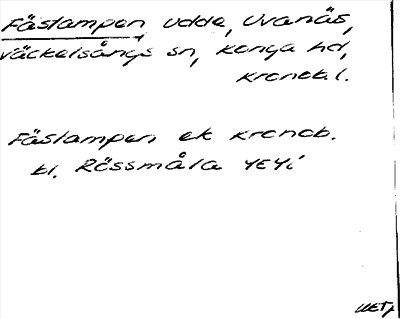 Fästampen, udde, Uvanäs,
Väckelsångs sn, Konga hd,
Kronob. l.
Fästampen ek Kronob.
bl. Rössmåla 4E4i